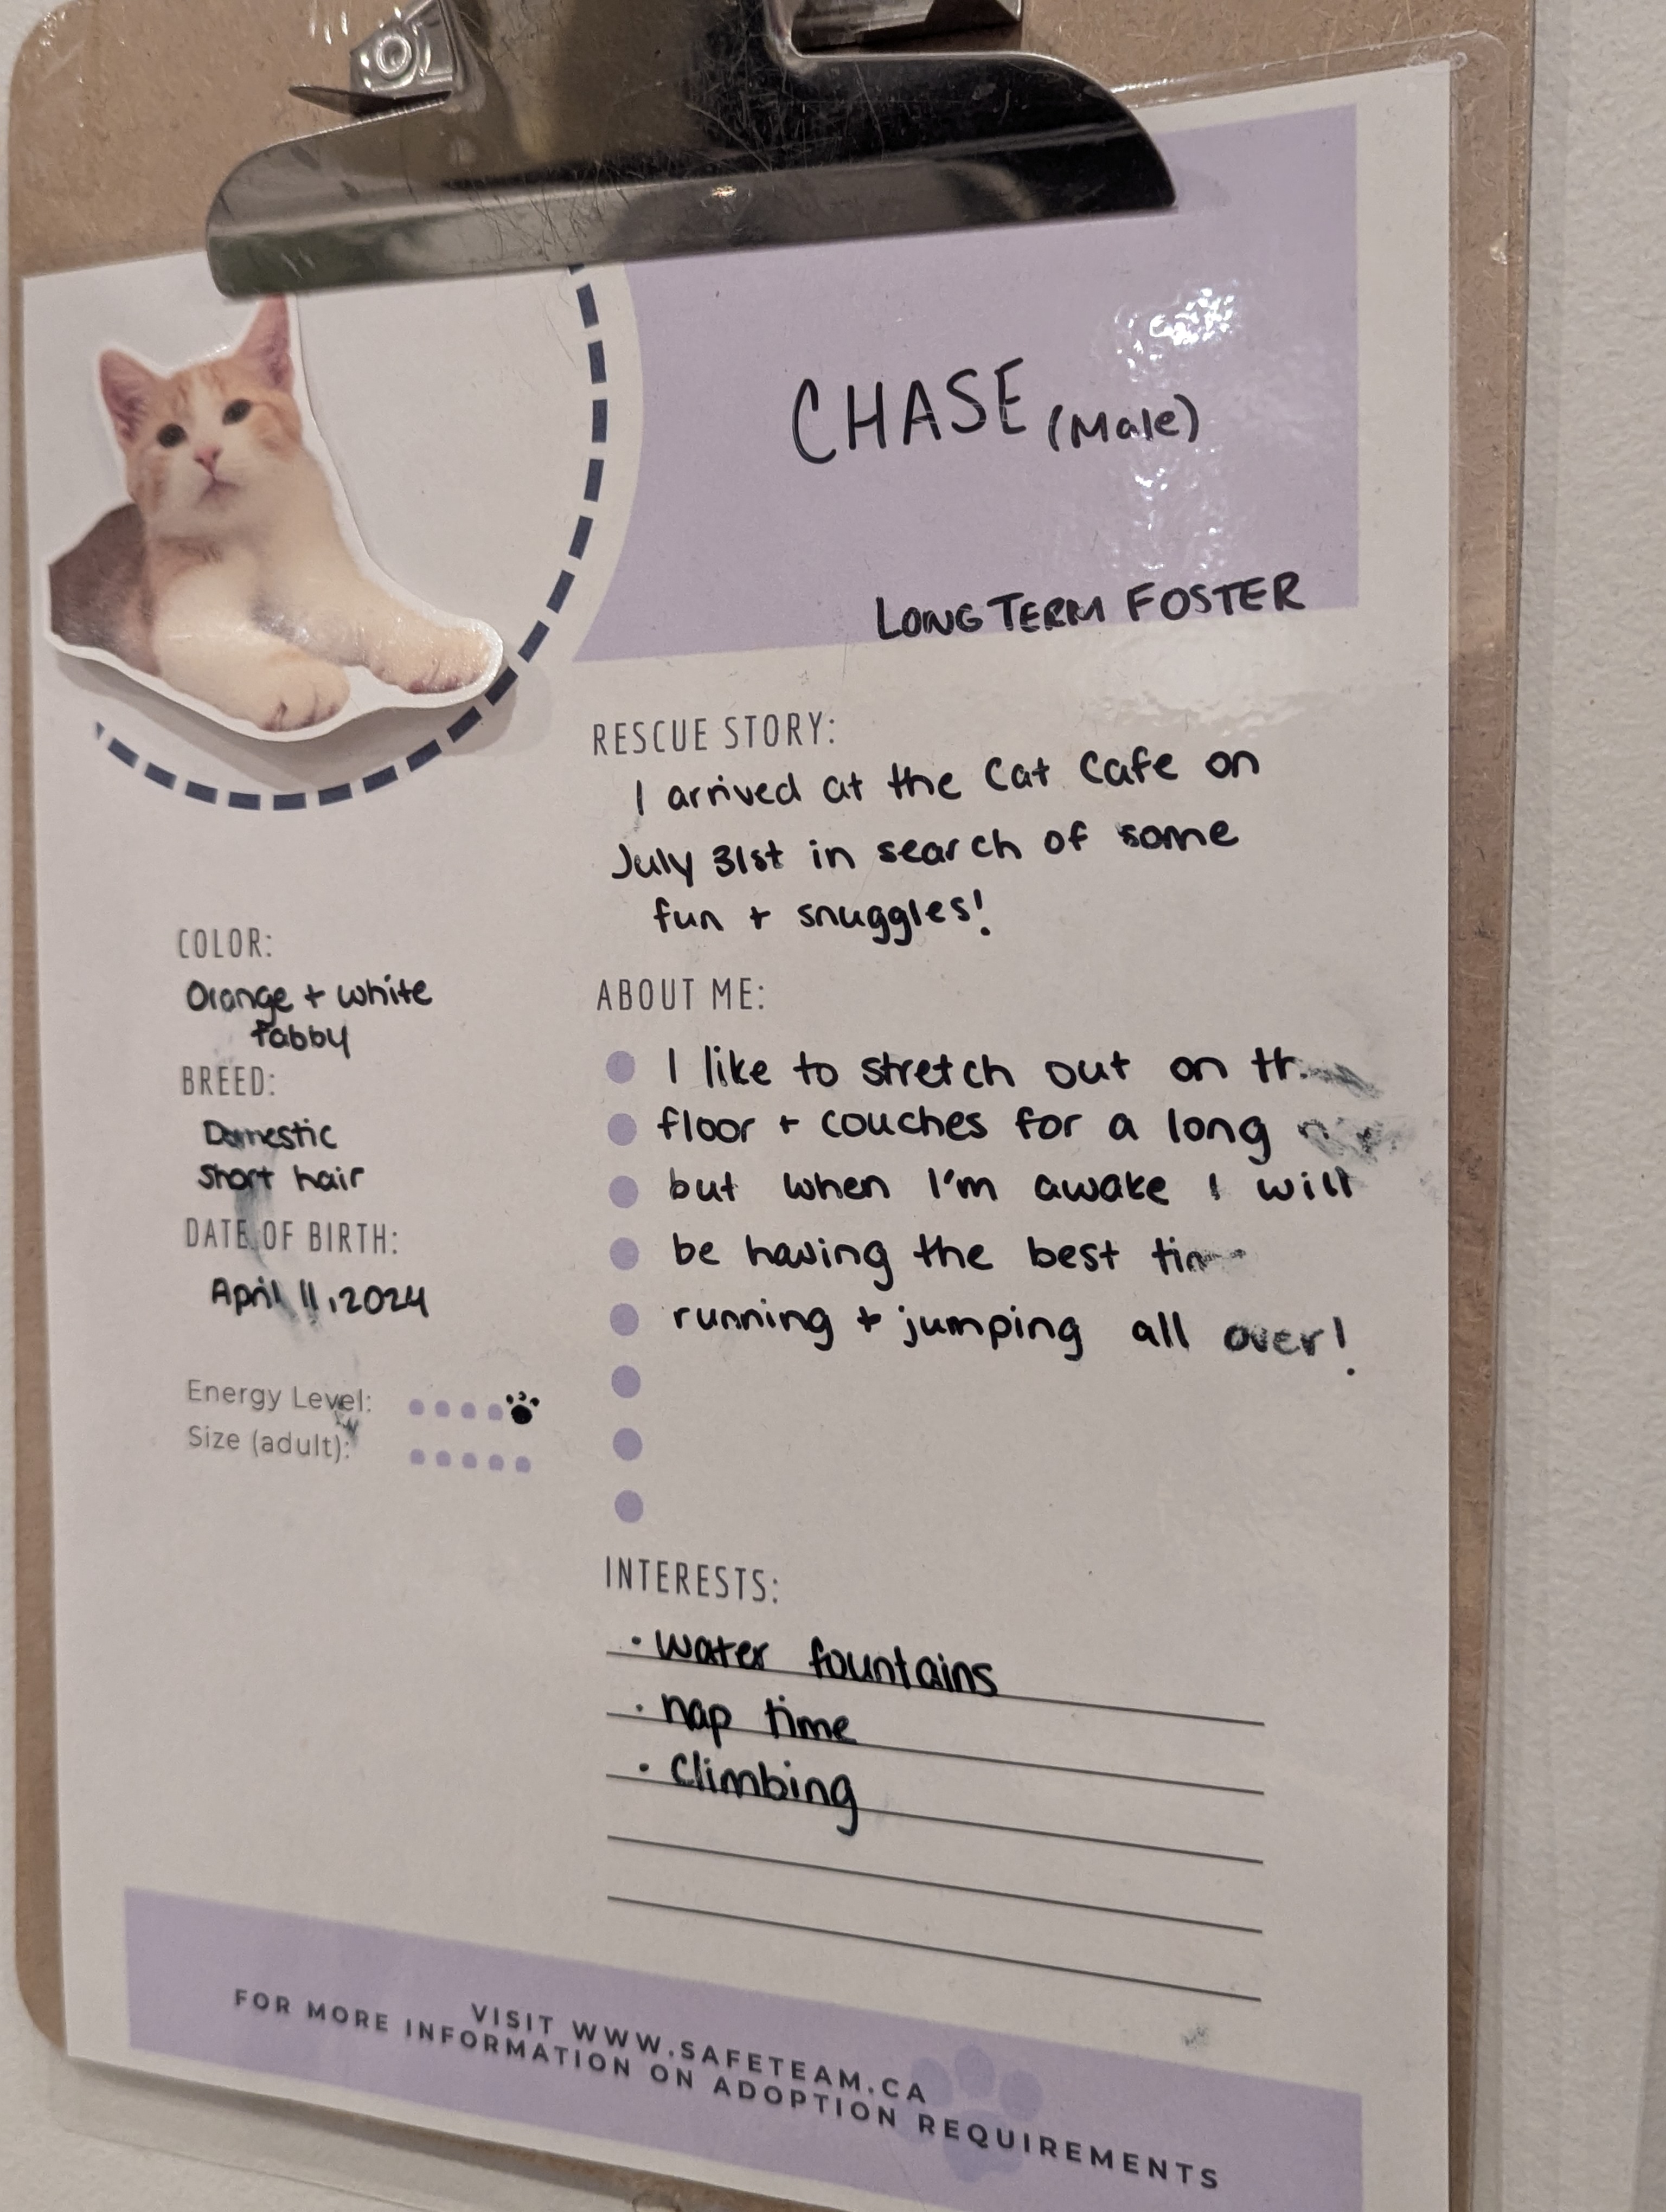 CHASE (Male)
LONG TERM FOSTER
RESCUE STORY:
I arrived at the Cat Cafe on
July 31st in search of some
fun + snuggles!
COLOR:
Orange + white
tabby
BREED:
Domestic
Short hair
DATE OF BIRTH:
April 11, 2024
Energy Level:
Size (adult):
ABOUT ME:
I like to stretch out on
floor + couches for a long
but when I'm awake I will
be having the best
running + jumping all over!
INTERESTS:
• water fountains
• nap time
• Climbing
VISIT WWW.SAFETEAM.CA
FOR MORE INFORMATION ON ADOPTION REQUIREMENTS